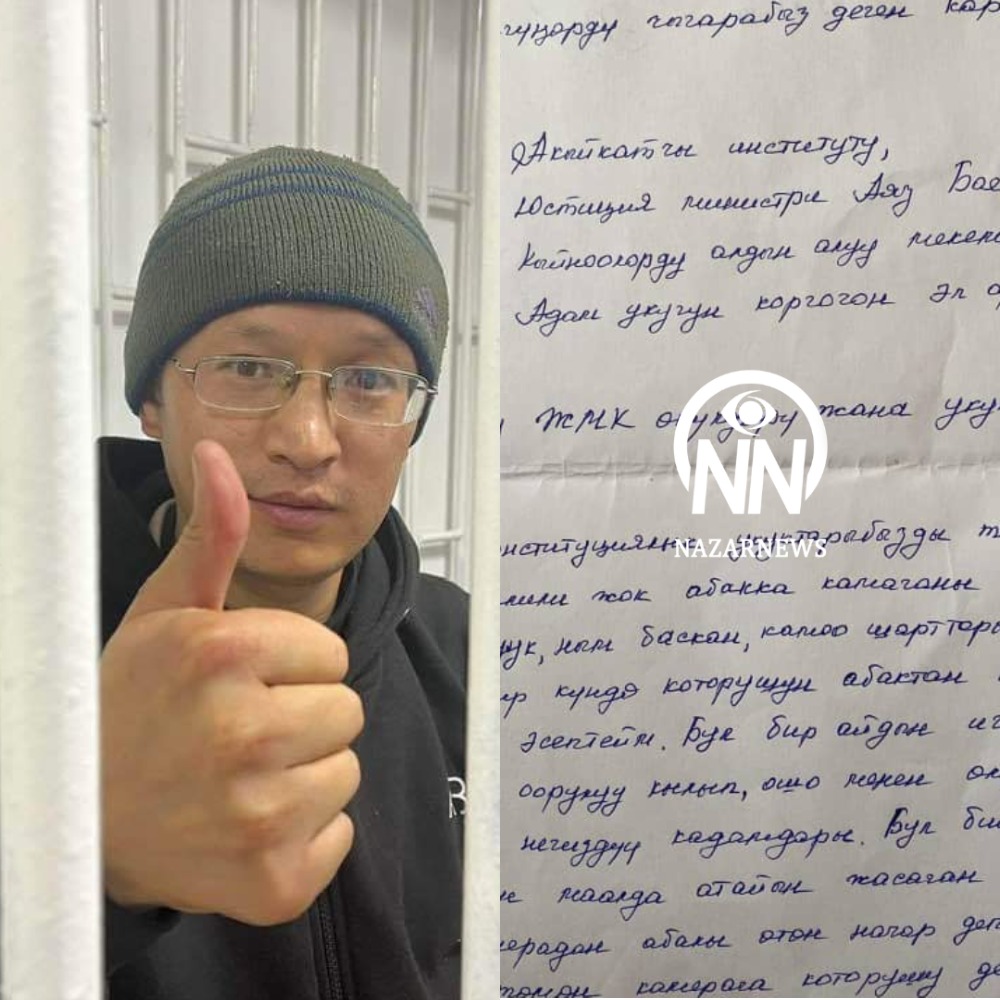 чыгарабыз деген
Акыйкатчы институту,
Юстиция министри Аяз Бае
Кыйноолорду алдын алуу
Адам укугун коргогон эл а
ЖМК жана уку
NN
NAZARNEWS
нституциялык укуктарыбызды т
жок абакка камаганы
ук, ным баскан, камоо шарттары
ир күндө которушун абактан
эсептейм. Бул бир айдын ич
оорулуу кылып, ошо менен
негиздүү кадамдары. Бул би
маалда атайын жасаган
ерадан абалы өтө начар деп
төмөн камерага которушу де
B